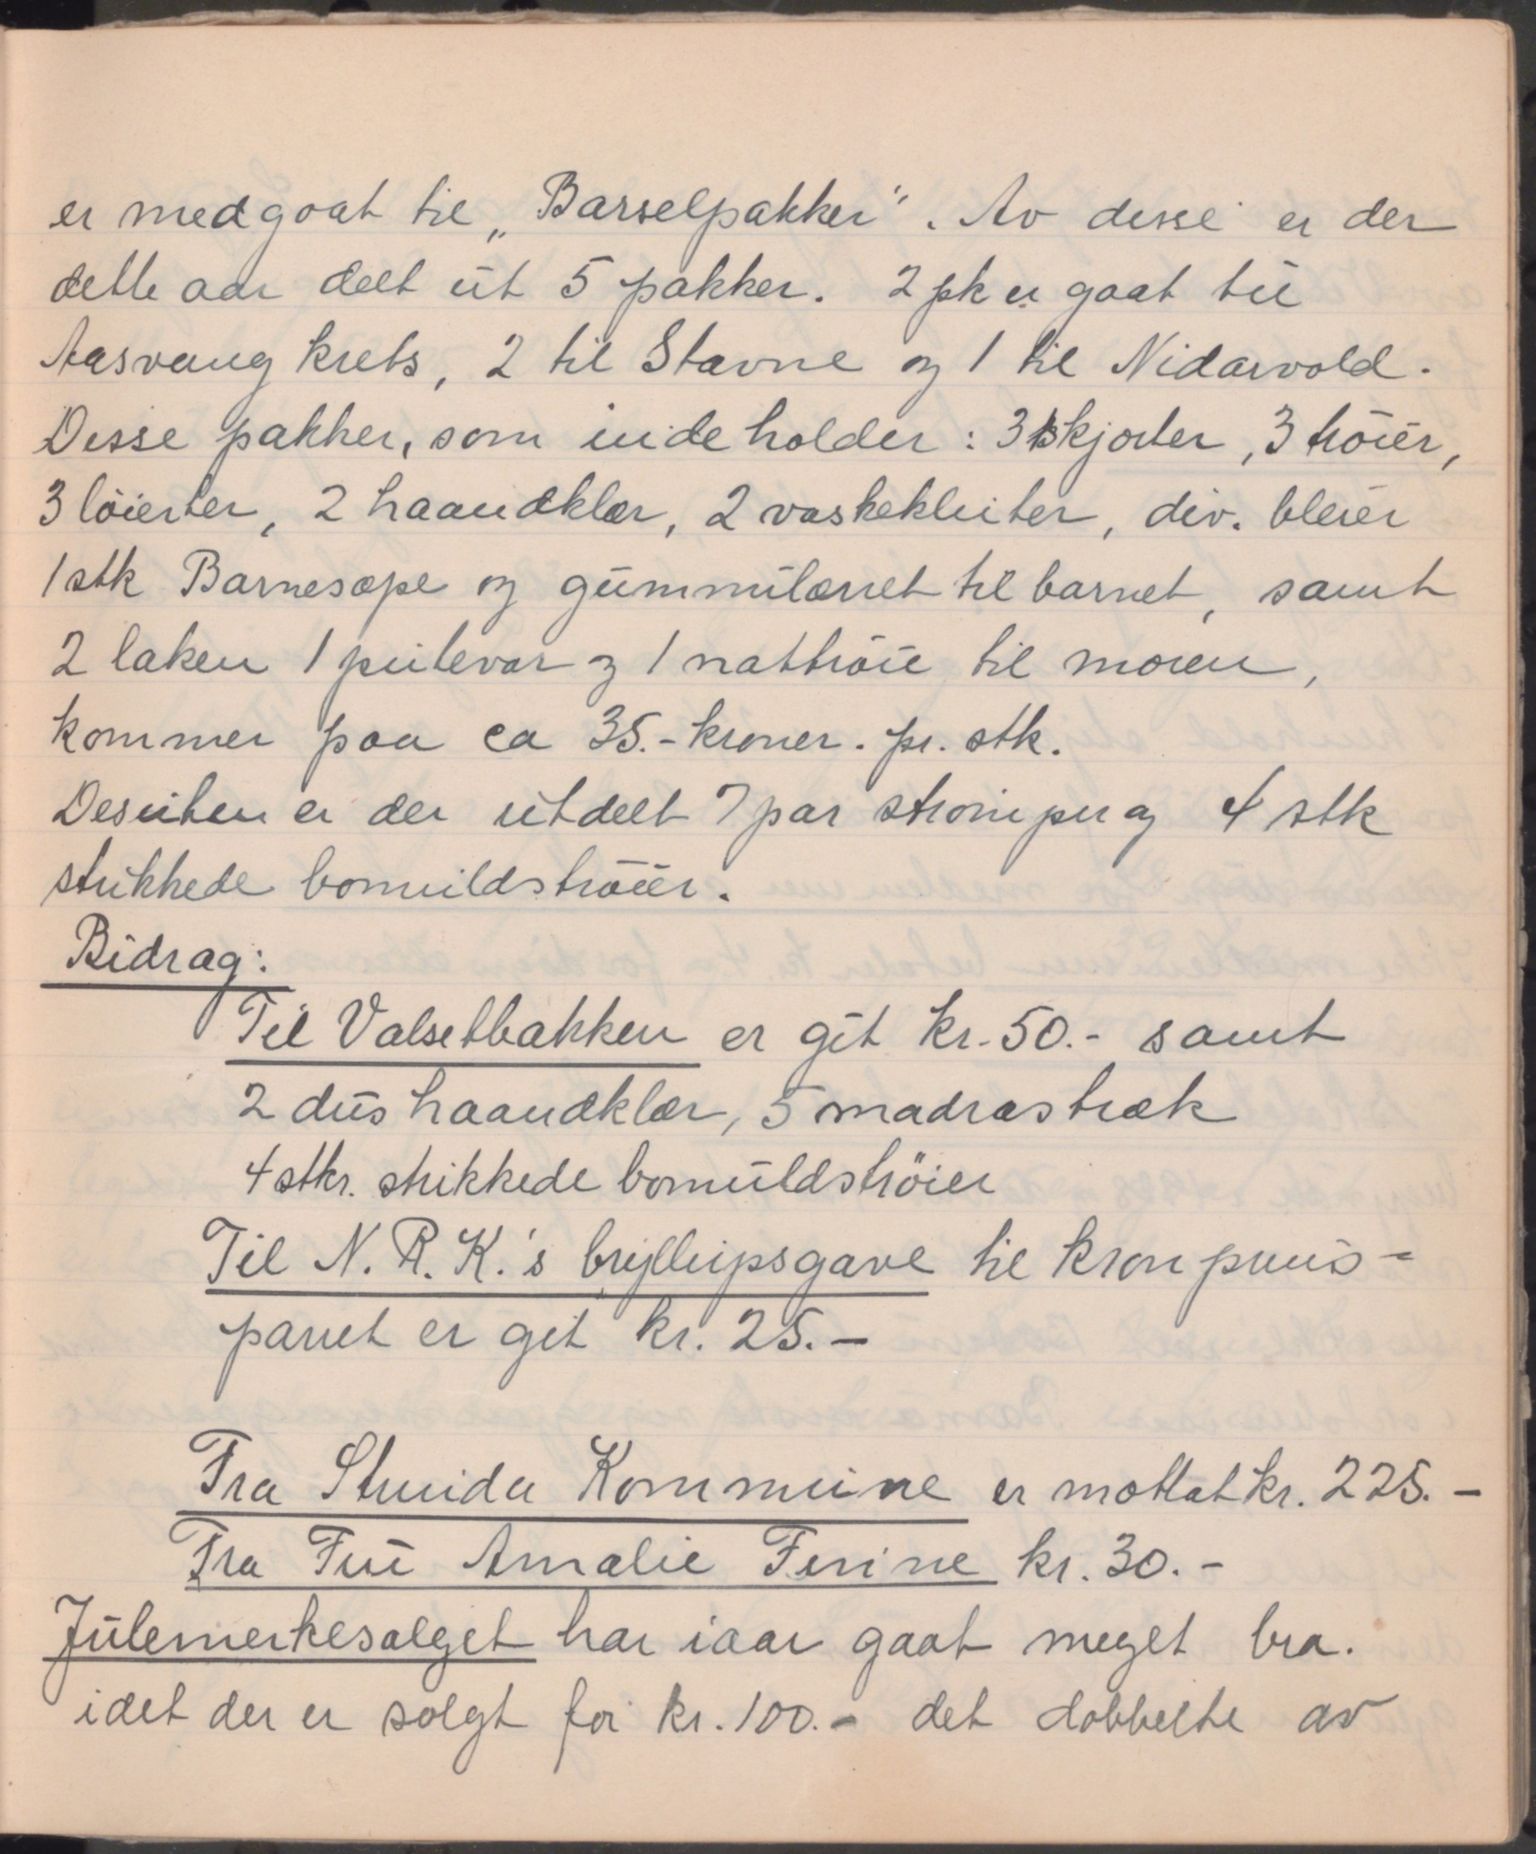 er medgaat til „Barselpakker“. Av disse er der
dette aar delt ut 5 pakker. 2 pk er gaat til
Aasvang krets, 2 til Stavne og 1 til Nidarvold.
Disse pakker, som indeholder: 3 skjorter, 3 trøier,
3 løierter, 2 haandklær, 2 vaskekluter, div. bleier
1 stk Barnesæpe og gummilærret til barnet, samt
2 laken 1 putevar og 1 nattrøie til moren,
kommer paa ca 35.- kroner. pr. stk.
Desuten er der utdelt 7 par strømper og 4 stk
strikkede bomuldstrøier.
Bidrag:
Til Valsetbakken er git kr. 50.- samt
2 dus haandklær, 5 madrastræk
4 stkr. strikkede bomuldströier
Til N. R. K.'s bryllupsgave til kronprins-
parret er git kr. 25.-
Fra Strinda Kommune er mottat kr. 225.-
Fra Fru Amalie Ferine kr. 30.-
Julemerkesalget har iaar gaat meget bra.
idet der er solgt for kr. 100.- det dobbelte av